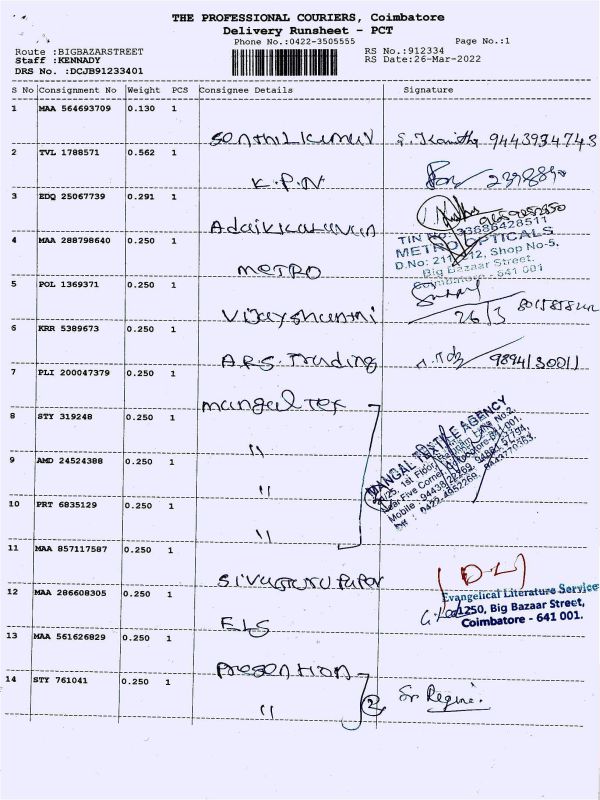 THE PROFESSIONAL COURIERS, Coimbatore
Delivery Runsheet - PCT
Phone No.:0422-3505555 Page No.:1
Route :BIGBAZARSTREET RS No.:912334
Staff :KENNADY RS Date:26-Mar-2022
DRS No. :DCJB91233401
S No Consignment No Weight PCS Consignee Details Signature
1 MAA 564693709 0.130 1
Senthilkumar 9443934743
2 TVL 1788571 0.562 1
K.P.N
3 EDQ 25067739 0.291 1
Adaikkalavan
TIN NO: 33686428511
4 MAA 288798640 0.250 1
METRO OPTICALS
D.No: 211, 212, Shop No-5,
metro Big Bazaar Street,
Coimbatore - 641 001
5 POL 1369371 0.250 1
Vijayshanthi 26/3
6 KRR 5389673 0.250 1
A.R.S. Trading
7 PLI 200047379 0.250 1
mangal Tex
8 STY 319248 0.250 1
MANGAL TEXTILE AGENCY
"
9 AMD 24524388 0.250 1
"
10 PRT 6835129 0.250 1
"
11 MAA 857117587 0.250 1
12 MAA 286608305 0.250 1
Evangelical Literature Service
1250, Big Bazaar Street,
Coimbatore - 641 001.
ELS
13 MAA 561626829 0.250 1
Presention
14 STY 761041 0.250 1
" 2 Sr. Regine.